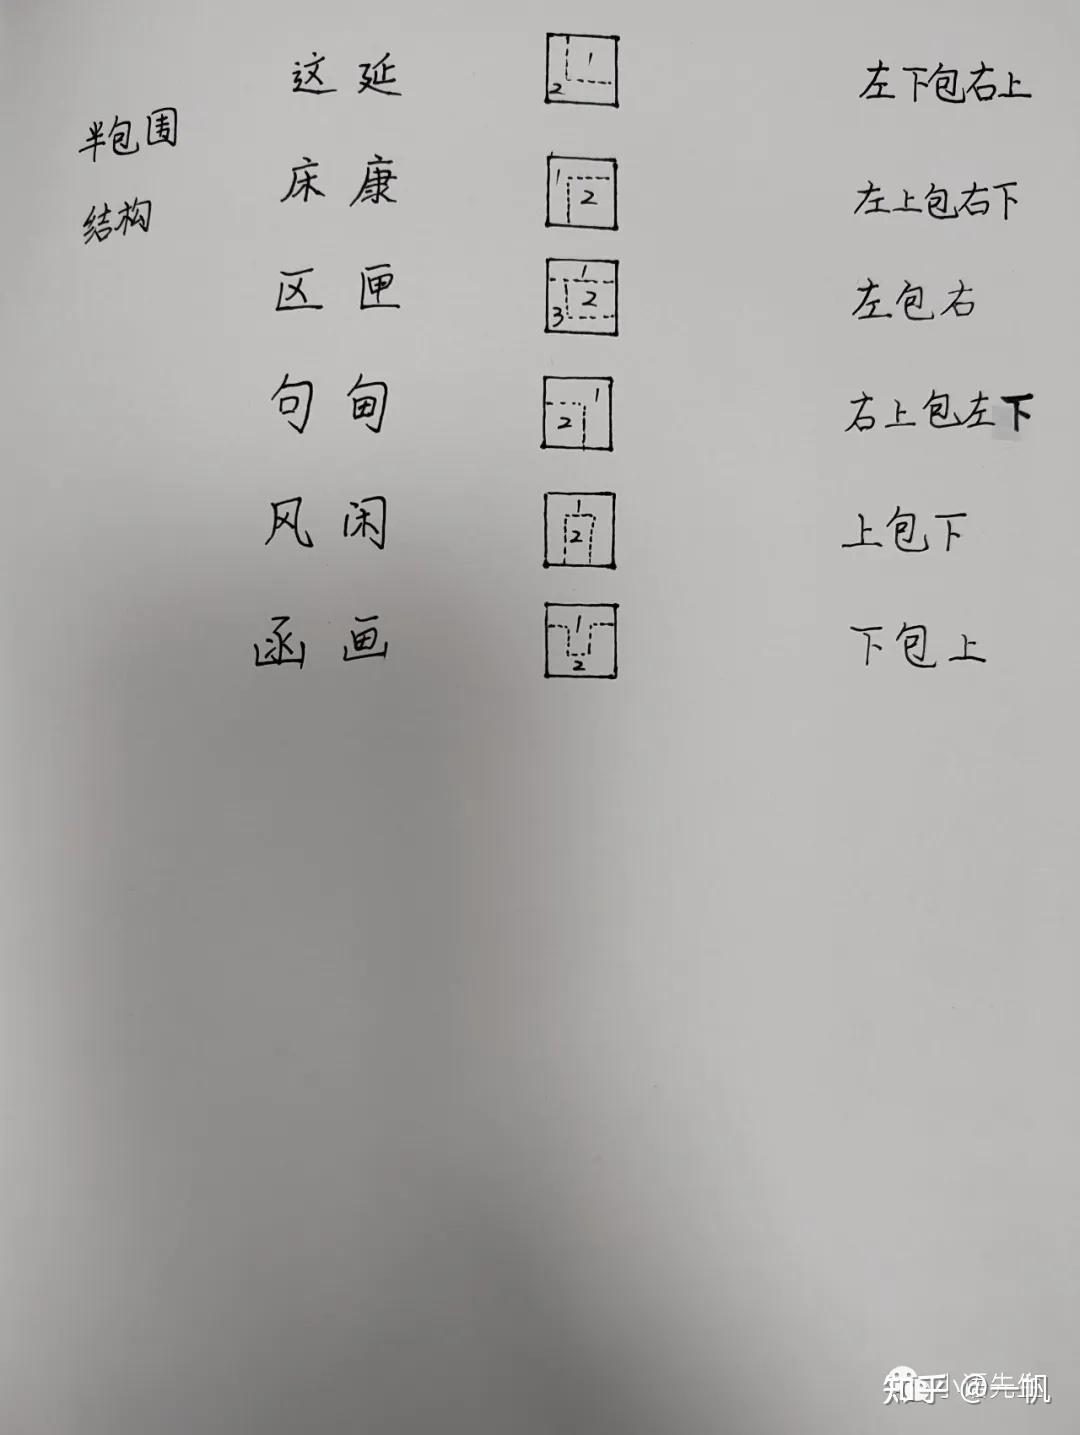 这 延 2 1 左下包右上
半包围
床 康 1 2 左上包右下
结构
区 匣 1 2 3 左包右
句 甸 1 2 右上包左下
风 闲 1 2 上包下
函 画 1 2 下包上
知乎 @一帆